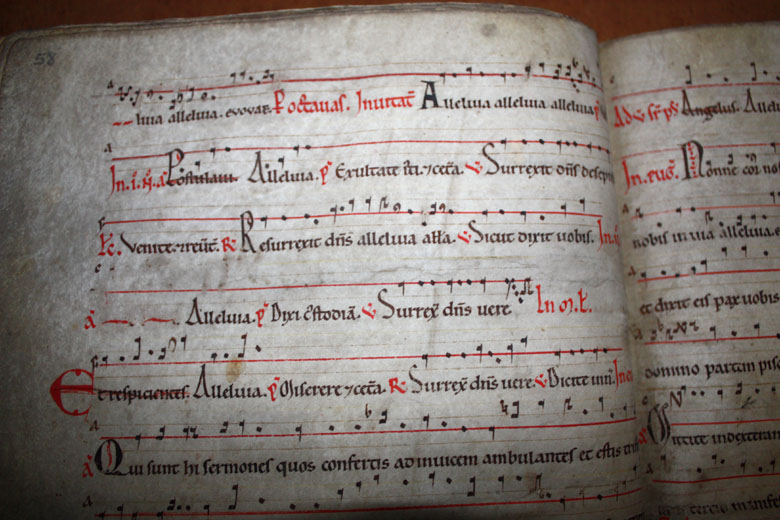 58
luia alleluia. evovae. P̄ octavas. Invitat̄ Alleluia alleluia alleluia
In. i. ꝉ. a Postulaui. Alleluia. p̄ Exultate sc̄i. ⁊ cet̄a. v Surrexit dn̄s de sepul
Venite. R̄ Resurrexit dn̄s alleluia all̄a. v Sicut dixit uobis. In
a Alleluia. p̄ Dixi c̄stodiā. v Surrex̄ dn̄s uere In
Et respicientes. Alleluia. p̄ Miserere ⁊ cet̄a. R̄ Surrex̄ dn̄s uere v Dicite
a Qui sunt hi sermones quos confertis ad inuicem ambulantes et estis
Angelus. Allel
In. euō. Nonne cor
nobis in uia alleluia.
et dixit eis pax uobis
domino partem pisc
Mittite in dexteram